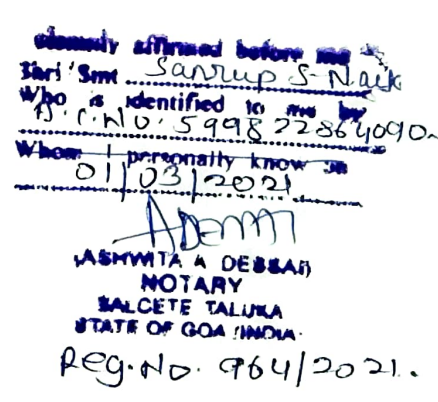 solemnly affirmed before me
Shri/Smt Sanrup S. Naik
Who is identified to me by
A.C.No. 599822864090
Whom I personally know on
01/03/2021
ASHWITA A DESSAI
NOTARY
SALCETE TALUKA
STATE OF GOA INDIA
Reg. No. 964/2021.